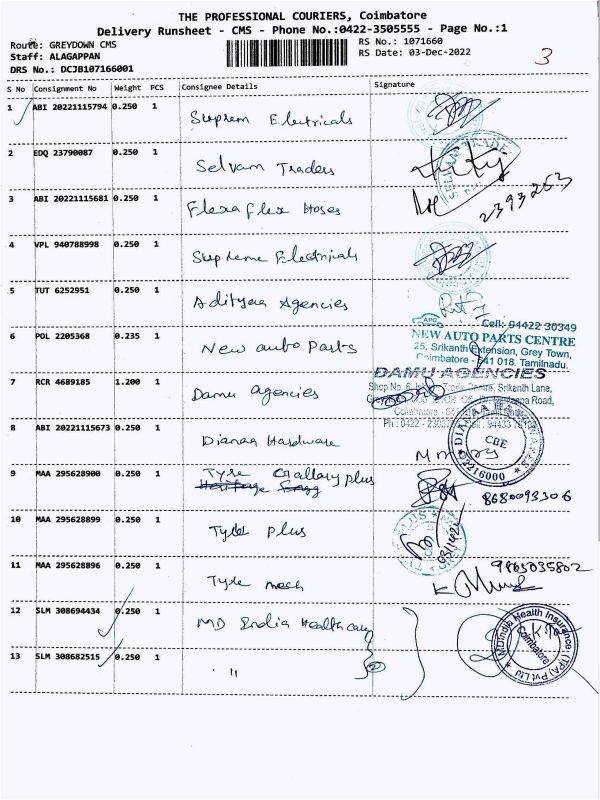 THE PROFESSIONAL COURIERS, Coimbatore
Delivery Runsheet - CMS - Phone No.:0422-3505555 - Page No.:1
Route: GREYDOWN CMS
RS No.: 1071660
Staff: ALAGAPPAN
RS Date: 03-Dec-2022
DRS No.: DCJB107166001
3
S No Consignment No Weight PCS Consignee Details Signature
1 ABI 20221115794 0.250 1 Suprem Electricals
2 EDQ 23790087 0.250 1 Selvam Traders
SELVAM TRADE
3 ABI 20221115681 0.250 1 Flexaflex Hoses
2393253
4 VPL 940788998 0.250 1 Supreme Electricials
5 TUT 6252951 0.250 1 Adityaa Agencies
APC Cell: 94422 30349
6 POL 2205368 0.235 1 New auto Parts
NEW AUTO PARTS CENTRE
25, Srikanth Extension, Grey Town,
Coimbatore - 641 018. Tamilnadu.
7 RCR 4689185 1.200 1 Damu agencies
DAMU AGENCIES
Srikanth Lane,
Road,
Coimbatore
Ph : 0422
8 ABI 20221115673 0.250 1 Dianaa Hardware
CBE
2216000
9 MAA 295628900 0.250 1 Tyre Gallary plus
8680093306
10 MAA 295628899 0.250 1 Tyre Plus
11 MAA 295628896 0.250 1 Tyre mech
9865035802
12 SLM 308694434 0.250 1 MD India Healthcare
MDIndia Health Insurance (TPA) Pvt Ltd
Coimbatore
13 SLM 308682515 0.250 1 "
2